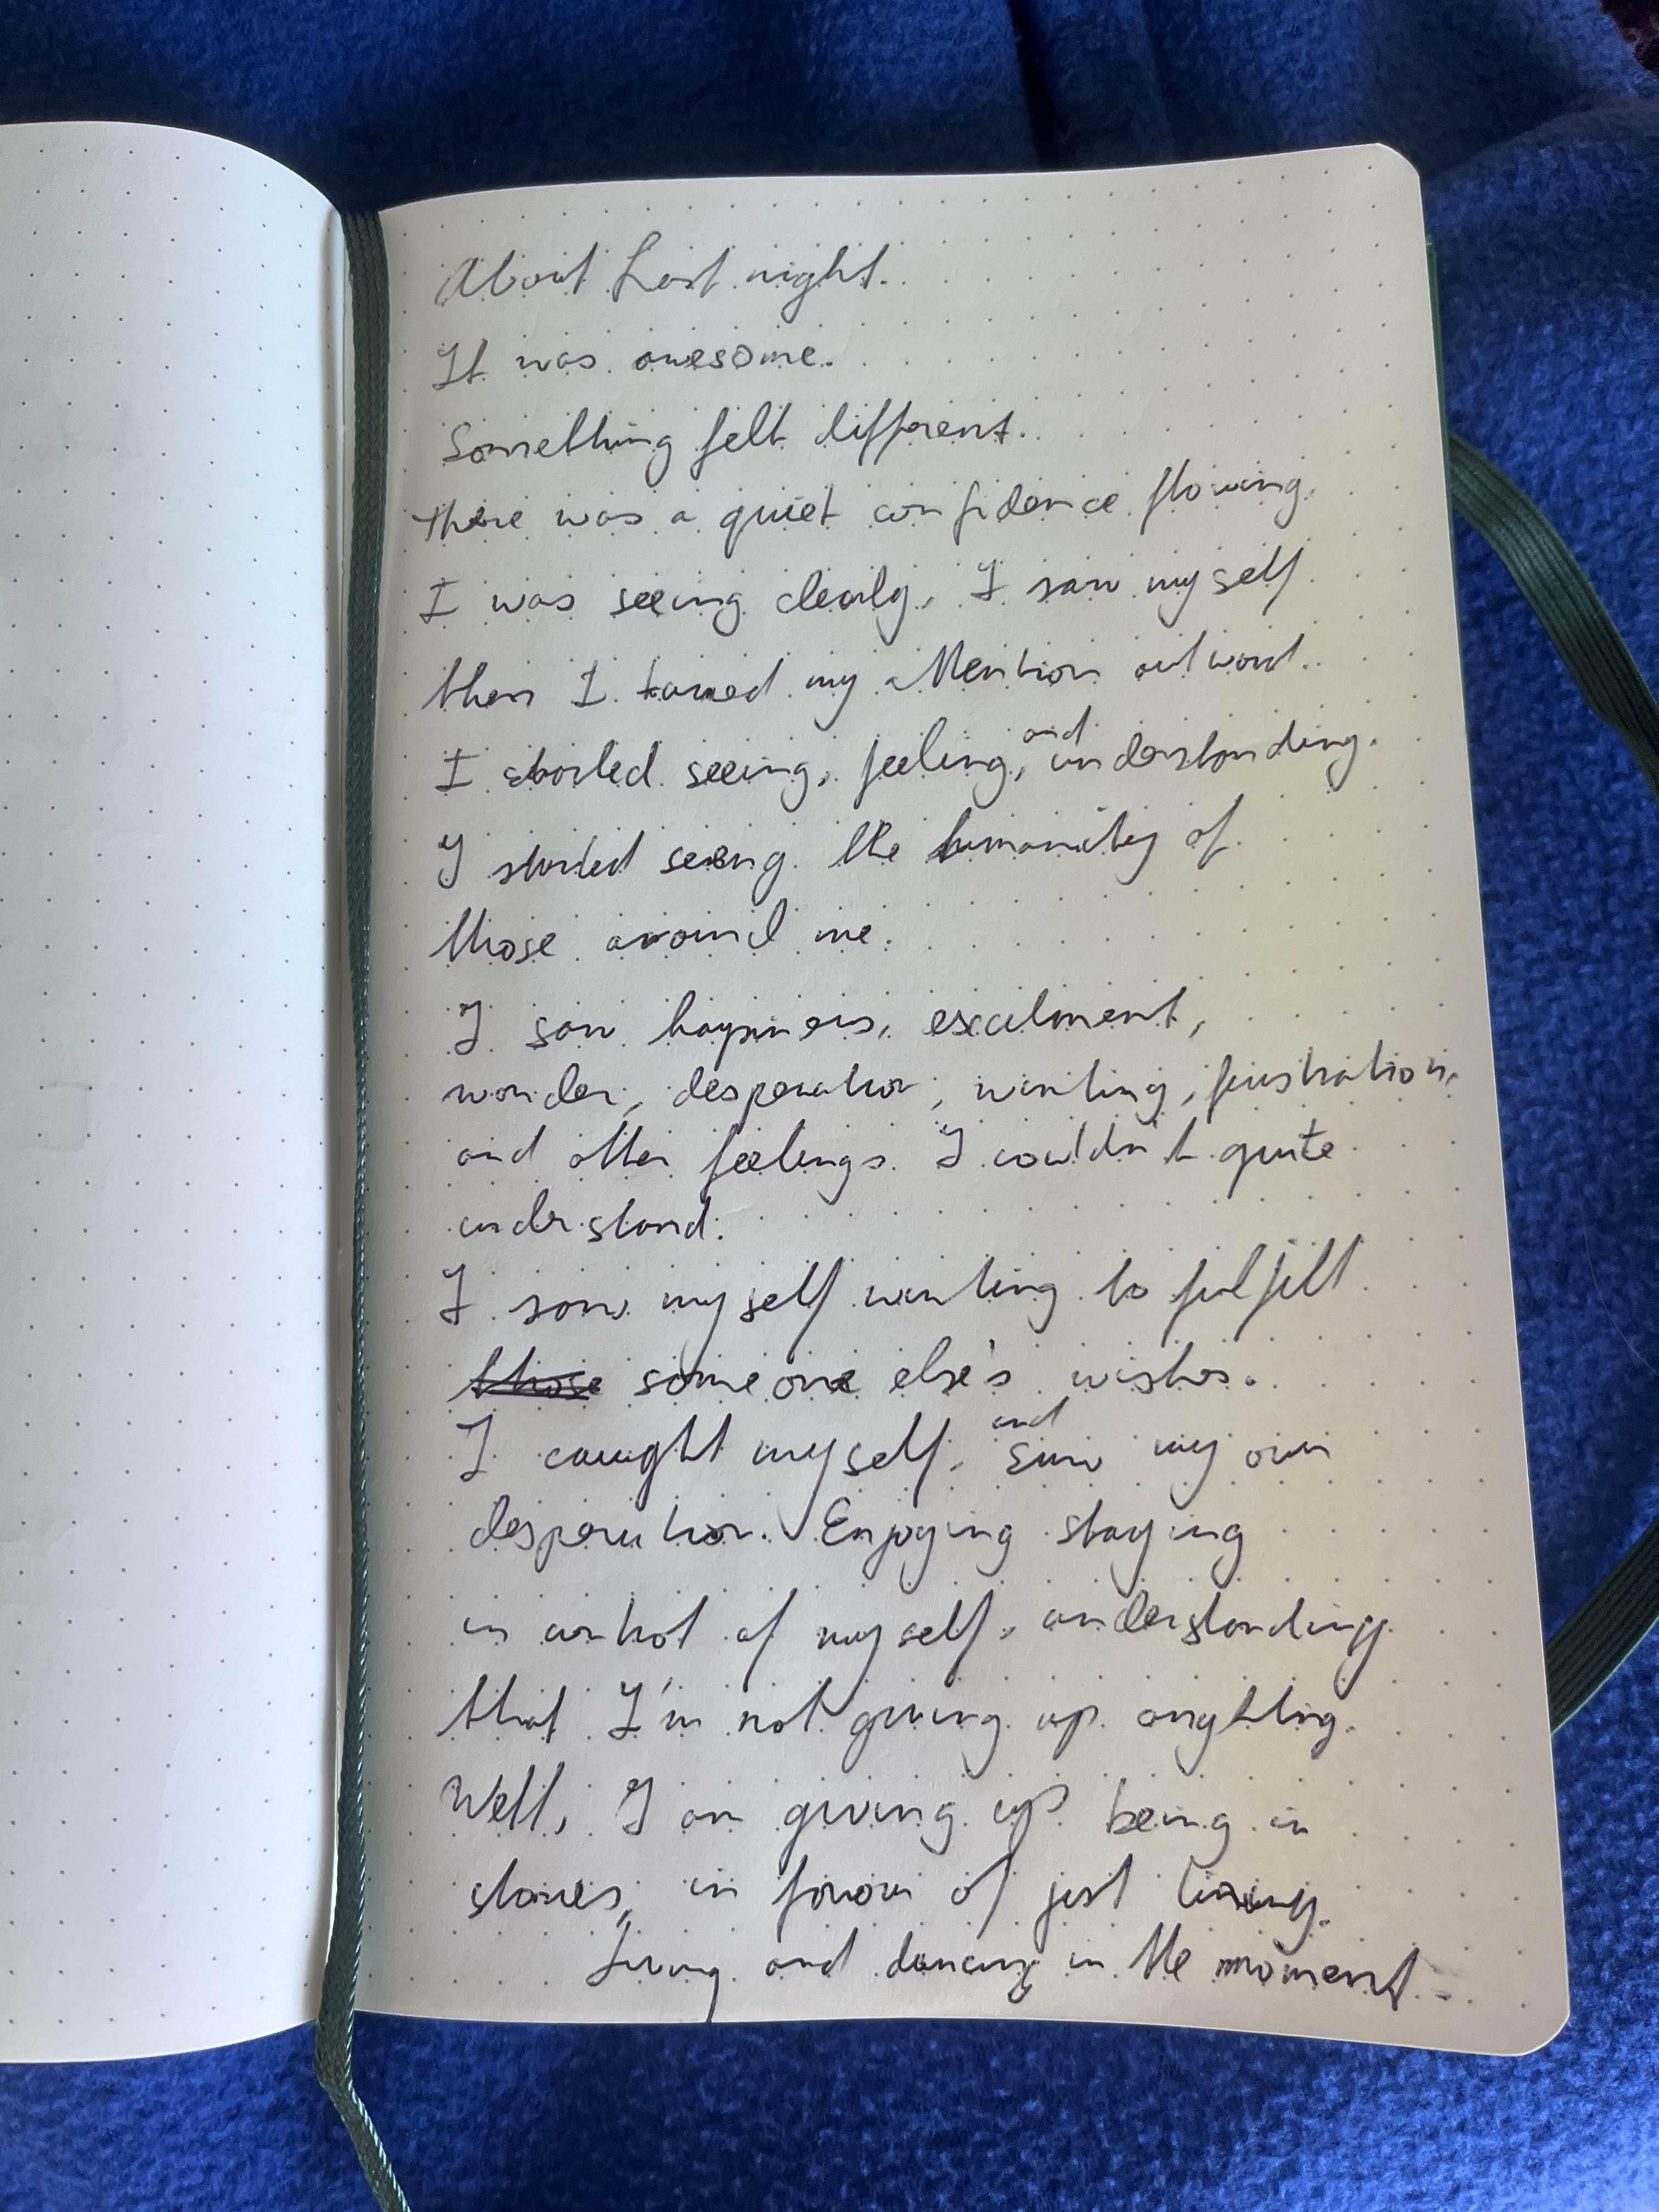 About Last night.
It was awesome.
Something felt different.
There was a quiet confidence flowing.
I was seeing clearly, I saw myself
then I turned my attention outward.
I started seeing, feeling, and understanding.
I started seeing the humanity of
those around me.
I saw happiness, excitment,
wonder, desperation, wanting, frustration,
and other feelings I couldn't quite
understand.
I saw myself wanting to fulfill
those someone else's wishes.
I caught myself, and saw my own
desperation. Enjoying staying
in of myself, understanding
that I'm not giving up anything.
Well, I am giving up being in
in favour of just living.
Living and dancing in the moment.